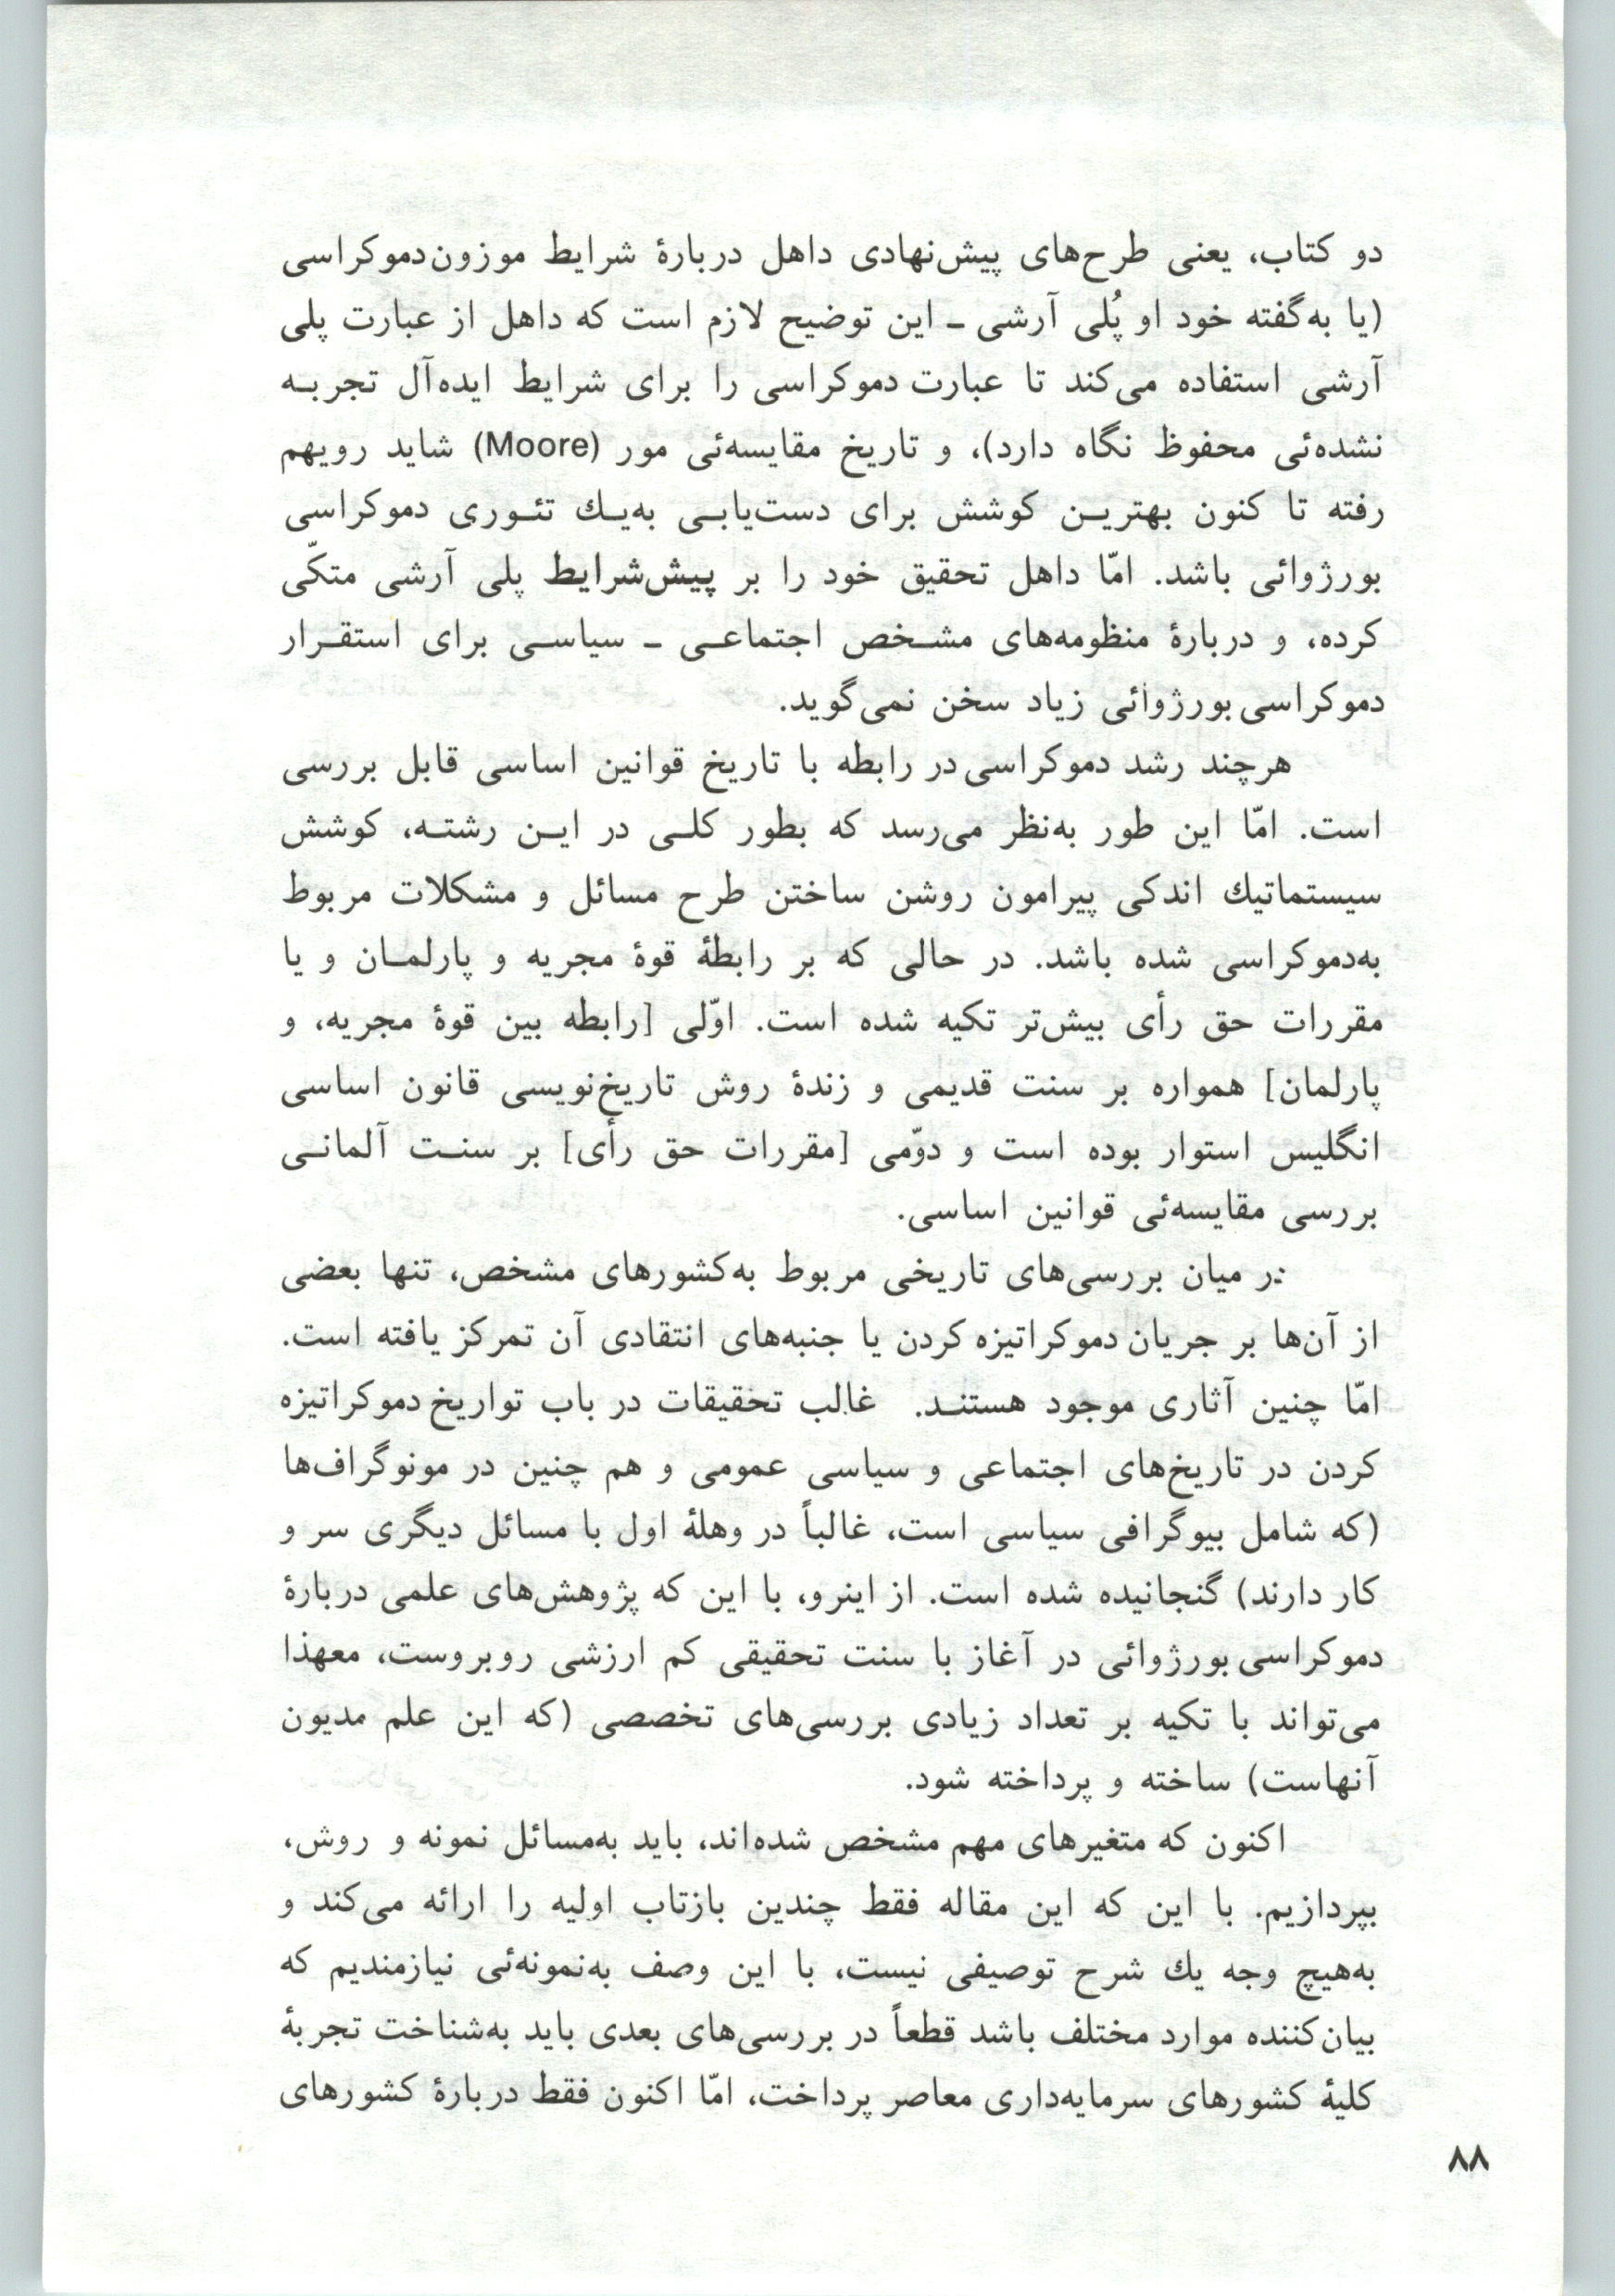 دو کتاب، یعنی طرح‌های پیش‌نهادی داهل دربارهٔ شرایط موزون دموکراسی
(یا به‌گفته خود او پُلی آرشی ـ این توضیح لازم است که داهل از عبارت پلی
آرشی استفاده می‌کند تا عبارت دموکراسی را برای شرایط ایده‌آل تجربه
نشده‌ئی محفوظ نگاه دارد)، و تاریخ مقایسه‌ئی مور (Moore) شاید رویهم
رفته تا کنون بهترین کوشش برای دست‌یابی به‌یك تئوری دموکراسی
بورژوائی باشد. امّا داهل تحقیق خود را بر پیش‌شرایط پلی آرشی متکّی
کرده، و دربارهٔ منظومه‌های مشخص اجتماعی ـ سیاسی برای استقرار
دموکراسی بورژوائی زیاد سخن نمی‌گوید.
هرچند رشد دموکراسی در رابطه با تاریخ قوانین اساسی قابل بررسی
است. امّا این طور به‌نظر می‌رسد که بطور کلی در این رشته، کوشش
سیستماتیك اندکی پیرامون روشن ساختن طرح مسائل و مشکلات مربوط
به‌دموکراسی شده باشد. در حالی که بر رابطهٔ قوهٔ مجریه و پارلمان و یا
مقررات حق رأی بیش‌تر تکیه شده است. اوّلی [رابطه بین قوهٔ مجریه، و
پارلمان] همواره بر سنت قدیمی و زندهٔ روش تاریخ‌نویسی قانون اساسی
انگلیس استوار بوده است و دوّمی [مقررات حق رأی] بر سنت آلمانی
بررسی مقایسه‌ئی قوانین اساسی.
در میان بررسی‌های تاریخی مربوط به‌کشورهای مشخص، تنها بعضی
از آن‌ها بر جریان دموکراتیزه کردن یا جنبه‌های انتقادی آن تمرکز یافته است.
امّا چنین آثاری موجود هستند. غالب تحقیقات در باب تواریخ دموکراتیزه
کردن در تاریخ‌های اجتماعی و سیاسی عمومی و هم چنین در مونوگراف‌ها
(که شامل بیوگرافی سیاسی است، غالباً در وهلهٔ اول با مسائل دیگری سر و
کار دارند) گنجانیده شده است. از اینرو، با این که پژوهش‌های علمی دربارهٔ
دموکراسی بورژوائی در آغاز با سنت تحقیقی کم ارزشی روبروست، معهذا
می‌تواند با تکیه بر تعداد زیادی بررسی‌های تخصصی (که این علم مدیون
آنهاست) ساخته و پرداخته شود.
اکنون که متغیرهای مهم مشخص شده‌اند، باید به‌مسائل نمونه و روش،
بپردازیم. با این که این مقاله فقط چندین بازتاب اولیه را ارائه می‌کند و
به‌هیچ وجه یك شرح توصیفی نیست، با این وصف به‌نمونه‌ئی نیازمندیم که
بیان‌کننده موارد مختلف باشد قطعاً در بررسی‌های بعدی باید به‌شناخت تجربهٔ
کلیهٔ کشورهای سرمایه‌داری معاصر پرداخت، امّا اکنون فقط دربارهٔ کشورهای
۸۸